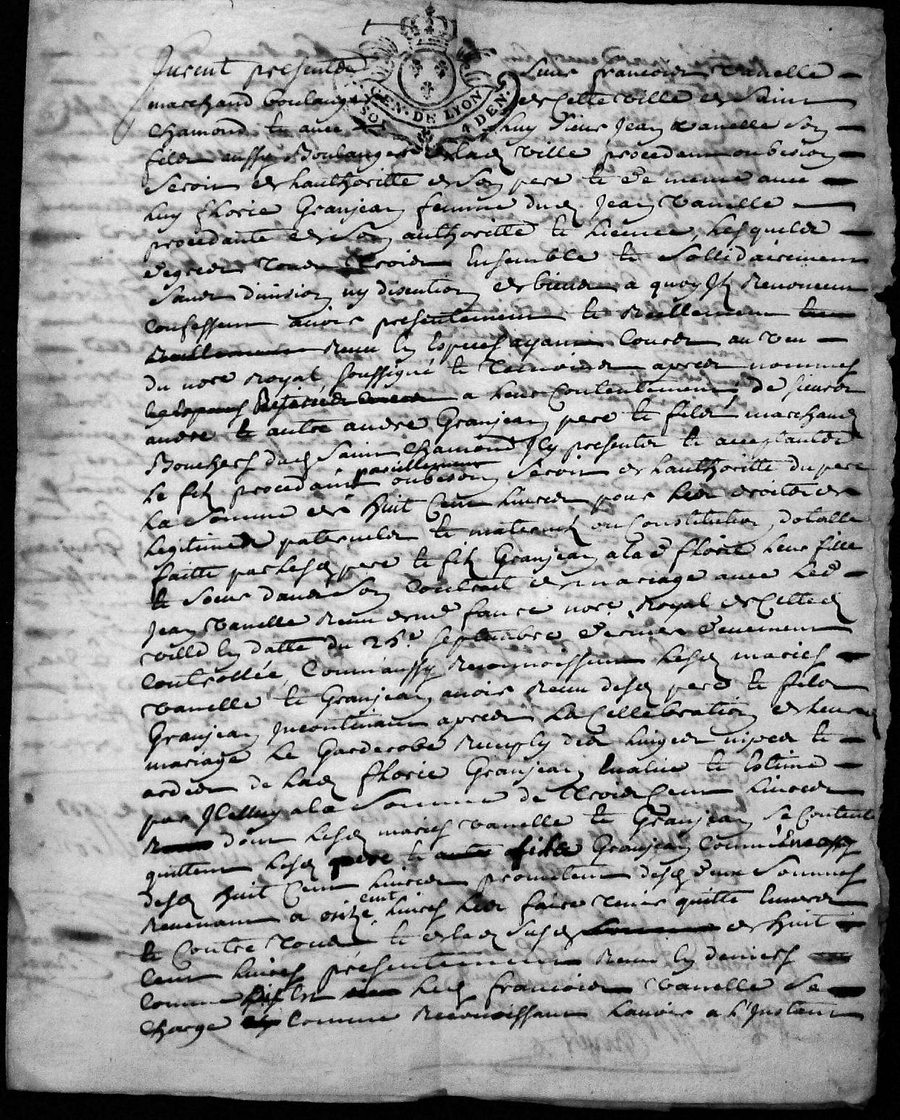 GEN. DE LYON
SOL 4 DEN.
furent presentz sieur francois vanelle
marchand boulanger de cette ville de saint
chamond et avec luy sieur Jean vanelle son
filz aussy Boulanger de lad ville procedant on besoin
seroit de lauthoritté de son pere et de meme avec
luy florie Granjean femme dud Jean vanelle
procedante de son authoritté et licence, lesquelz
degrez tous trois Ensemble et sollidairement
sans division ny discution de biens a quoy Ilz Renoncent
confessent avoir presentement et Reellement
Receu en especes ayants cours au veu
du nore Royal soussigné et temoins apres nommes
a leur contentement de sieurs
andre et autre andre Granjean pere et filz marchands
Bouchers dud saint chamond Icy presentz et acceptantz
le filz procedant pareillement on besoin seroit de lauthoritté du pere
la somme de huit cent livres pour les droitz de
legitimes paternelz et maternelz ou constitution dotalle
faitte par lesd pere et filz Granjean a lad florie leur fille
et soeur dans son contrait de mariage avec led
Jean vanelle Receu me nore Royal de cetted
ville en datte du 26e septembre dernier deuement
controllée, comm'aussy Reconnoissent lesd mariés
vanelle et Granjean avoir Receu desd pere et filz
Granjean Incontinant apres la cellebration de leur
mariage le Garderobe Remply des linges nipes et
ardes de lad florie Granjean Evalué et Estimé
par a la somme de trois cent livres
dont lesd mariés vanelle et Granjean se contentent
quittent lesd pere et filz Granjean comm'Encor
desd huit cent livres promettent desd deux sommes
Revenant a onze cent livres les faire tenir quitte Envers
et contre tous et de lad susd de huit
cent livres presentement Receue en deniers
comme led francois vanelle se
charge comme Reconoissant lavoir a l'Instant